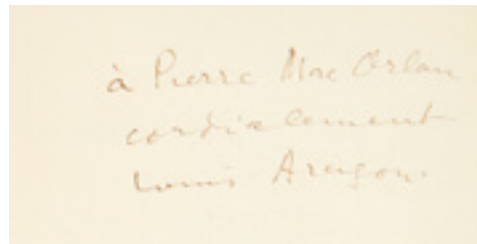 à Pierre Mac Orlan
cordialement
Louis Aragon.